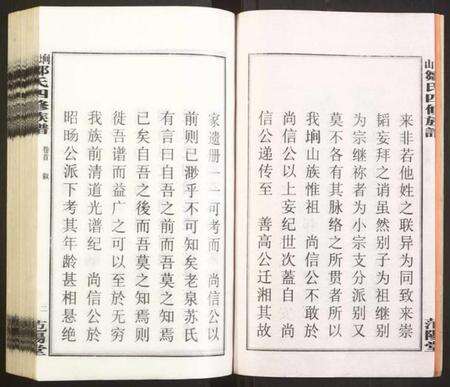 山鄒氏四修族譜
范陽堂
来非若他姓之联异为同致来崇
韬妄拜之诮虽然别子为祖继别
为宗继祢者为小宗支分派别又
莫不各有其脉络之所贯者所以
我坰山族惟祖 尚信公不敢於
尚信公以上妄纪世次蓋自 尚
信公递传至 善高公迁湘其故
家遗册一一可考而 尚信公以
前则已渺乎不可知矣老泉苏氏
有言曰自吾之前而吾莫之知焉
已矣自吾之後而吾莫之知焉则
徙吾谱而益广之可以至於无穷
我族前清道光谱纪 尚信公於
昭旸公派下考其年龄甚相悬绝
氏四修族譜
卷首 叙
范陽堂